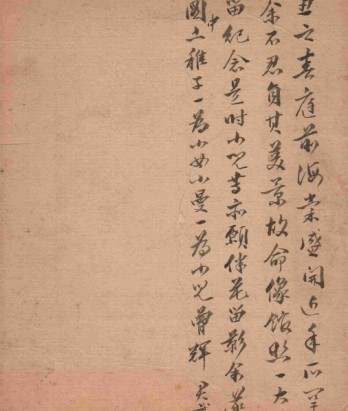 丑之春庭前海棠盛開近年所罕
余不忍負其美景故命像館照一大
留紀念是时小児等亦願伴花留影余遂
中
圖上稚子一為小女小曼一為小児曾輝